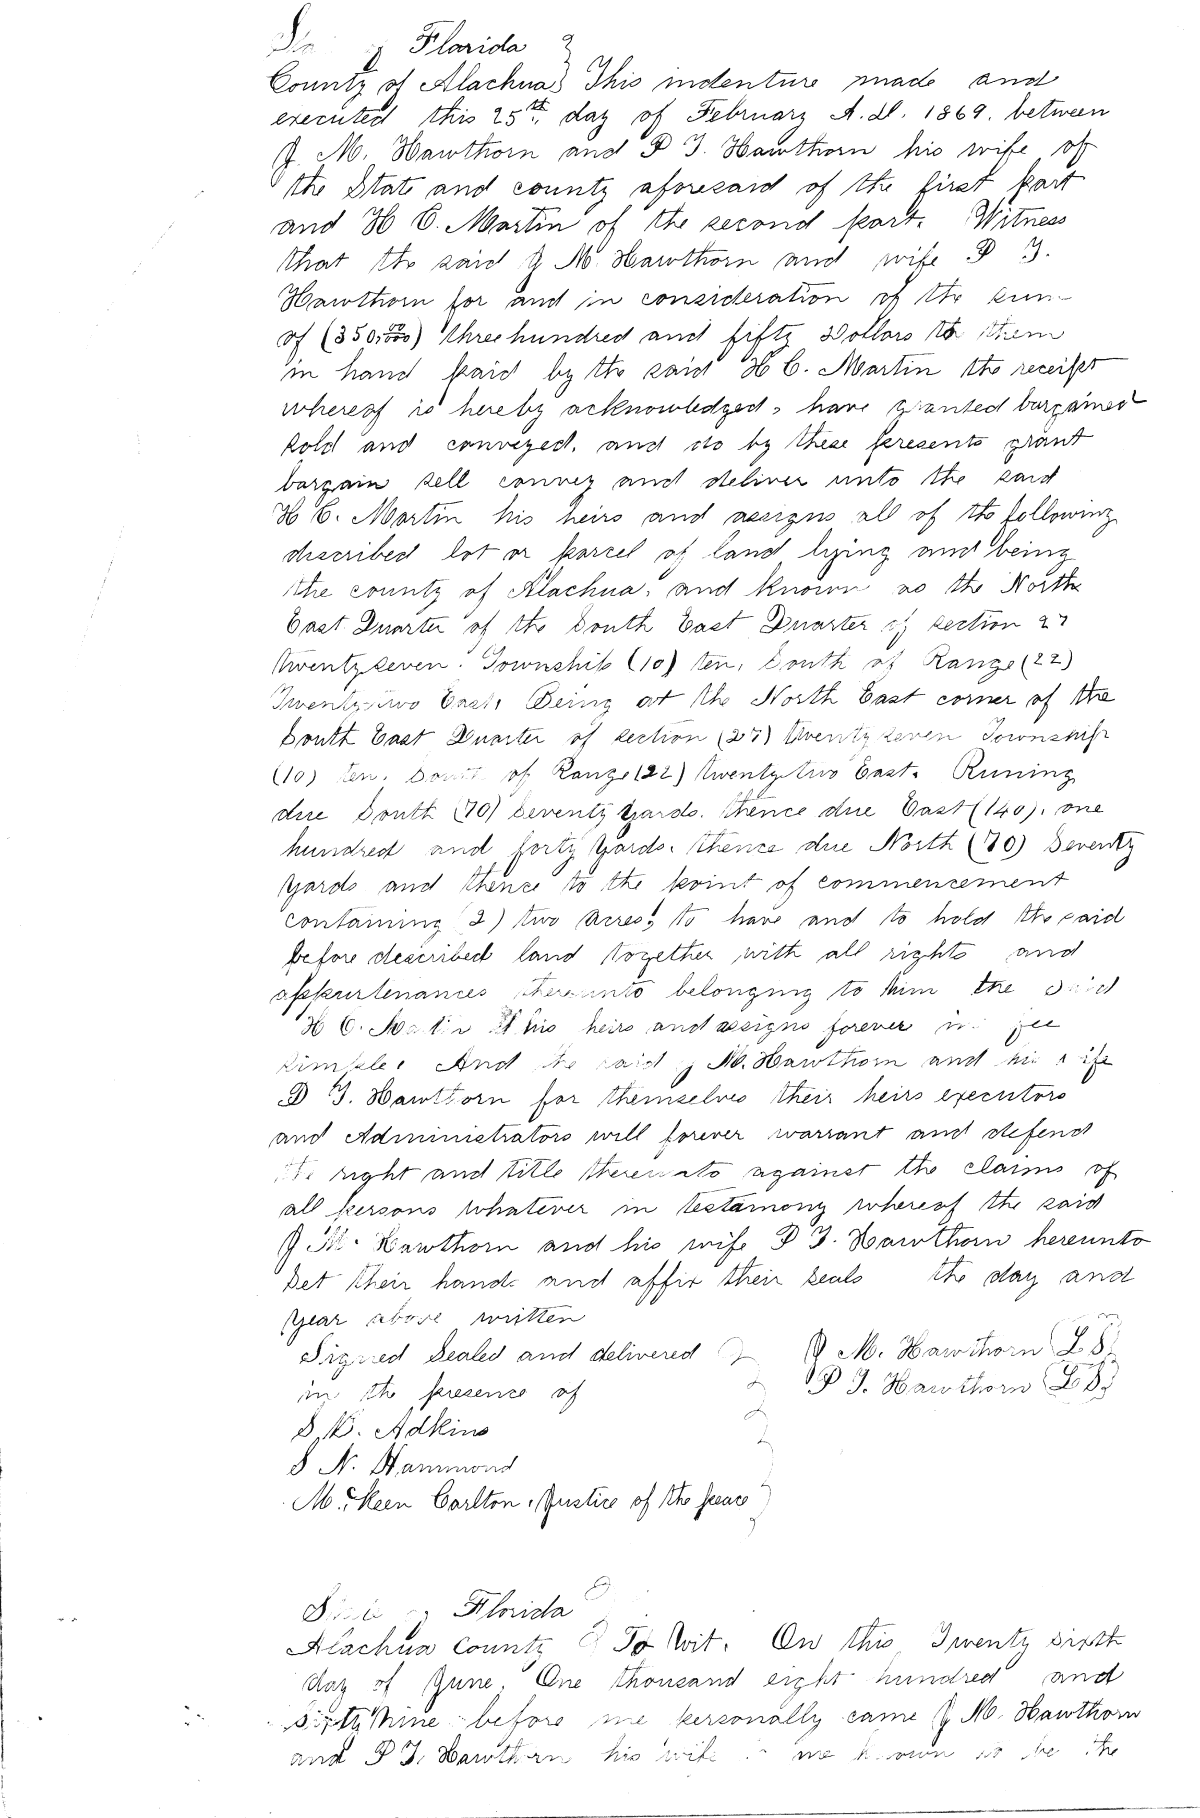 Florida
County of Alachua This indenture made and
executed this 25th day of February A.D. 1869. between
J. M. Hawthorn and P J. Hawthorn his wife of
the State and county aforesaid of the first part
and H C. Martin of the second part. Witness
that the said J M. Hawthorn and wife P J.
Hawthorn for and in consideration of the sum
of (350.00) three hundred and fifty Dollars to them
in hand paid by the said H C. Martin the receipt
whereof is hereby acknowledged, have granted bargained
sold and conveyed. and do by these presents grant
bargain sell convey and deliver unto the said
H C. Martin his heirs and assigns all of the following
described lot or parcel of land lying and being
the county of Alachua. and known as the North
East Quarter of the South East Quarter of section 27
twenty seven. Township (10) ten, South of Range (22)
Twenty-two East. Being at the North East corner of the
South East Quarter of section (27) twenty seven Township
(10) ten. South of Range (22) twenty two East. Runing
due South (70) Seventy yards. thence due East (140). one
hundred and forty yards. thence due North (70) Seventy
yards and thence to the point of commencement
containing (2) two acres; to have and to hold the said
before described land together with all rights and
appurtenances thereunto belonging to him the said
H C. Martin his heirs and assigns forever in fee
simple. And the said J M. Hawthorn and his wife
P J. Hawthorn for themselves their heirs executors
and Administrators will forever warrant and defend
the right and title thereunto against the claims of
all persons whatever in testamony whereof the said
J M. Hawthorn and his wife P J. Hawthorn hereunto
set their hands and affix their seals the day and
year above written
Signed Sealed and delivered J M. Hawthorn (L S)
in the presence of P J. Hawthorn (L S)
S. K. Adkins
S N. Hammond
M. Keen Carlton. Justice of the peace
State of Florida
Alachua County To Wit. On this Twenty sixth
day of June. One thousand eight hundred and
Sixty Nine before me personally came J M. Hawthorn
and P J. Hawthorn his wife to me known to be the